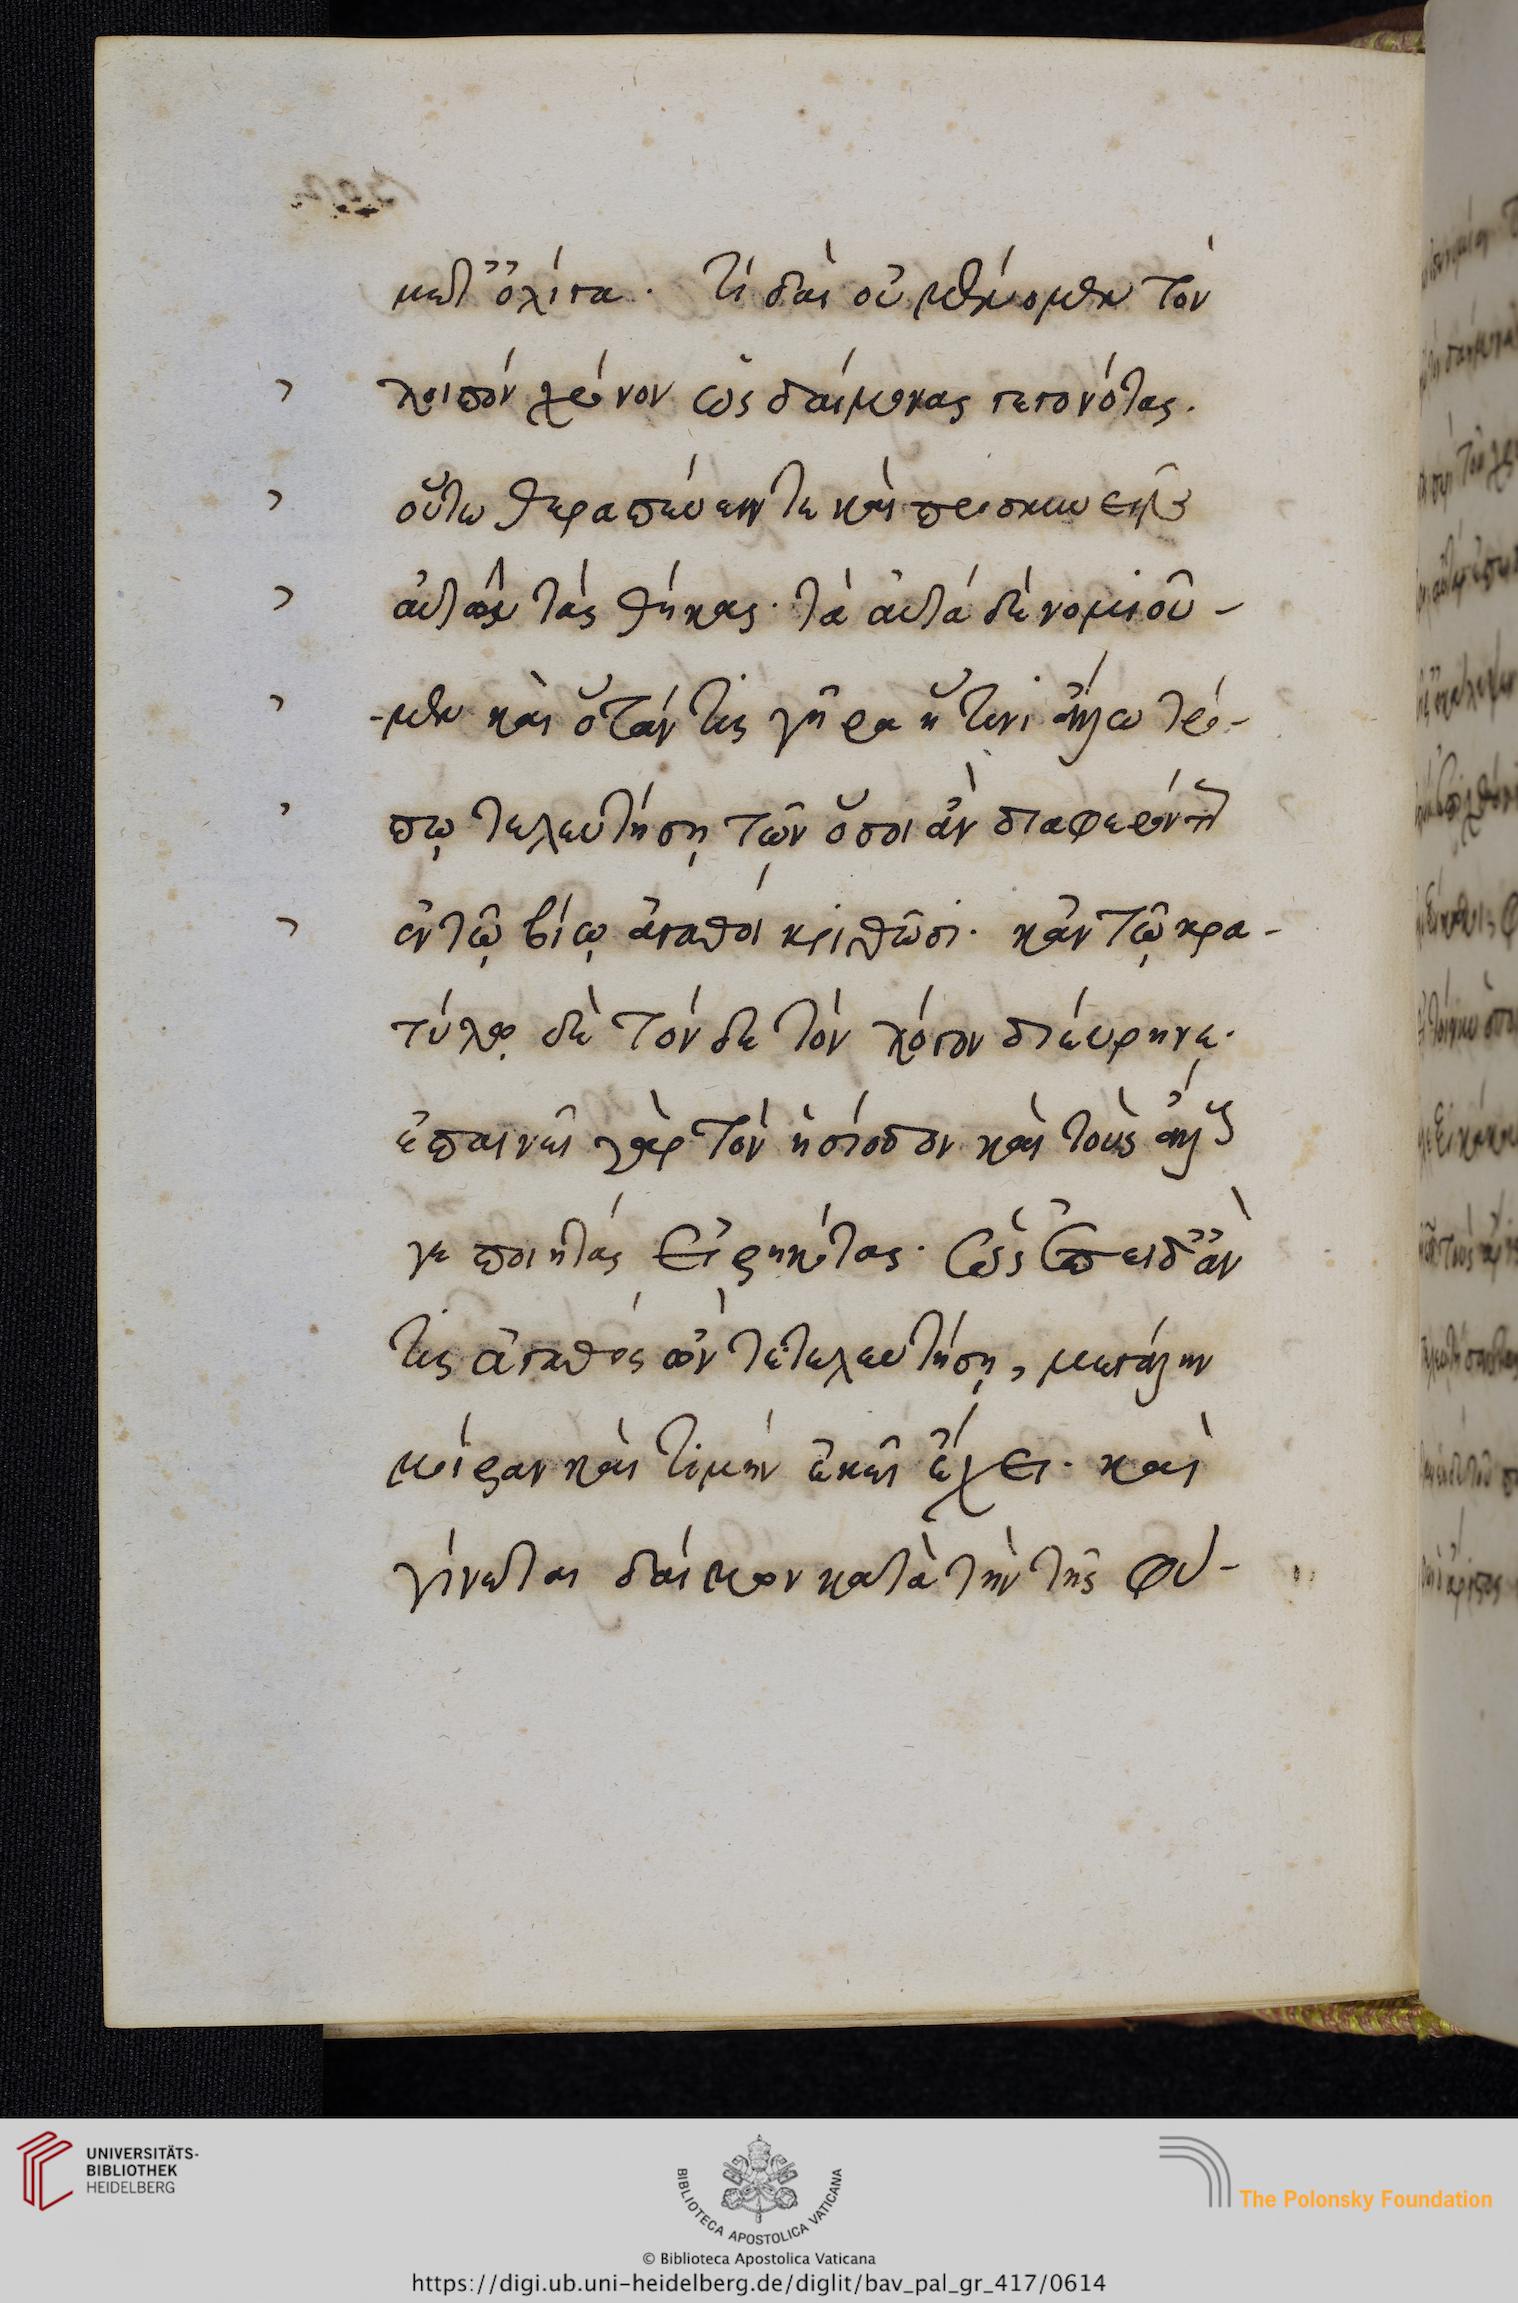 μετ' ὀλίγα. τί δαὶ οὐ πυθόμεθα τὸν
λοιπὸν χρόνον ὡς δαίμονας γεγονότας.
οὕτω θεραπεύειν τε καὶ προσκυνεῖν
αὐτῶν τὰς θήκας. τὰ αὐτὰ δὲ νομιοῦ-
-μεν καὶ ὅτάν τις γήρα ἤ τινι ἄλλω τρό-
πῳ τελευτήσῃ τῶν ὅσοι ἂν διαφερόντως
ἐν τῷ βίῳ ἀγαθοὶ κριθῶσι. κἀν τῷ κρα-
τύλῳ δὲ τόν δε τὸν λόγον διεύρηνε.
ἐπαινεῖ γὰρ τὸν ἡσίοδον καὶ τοὺς ἄλλους
γε ποιητὰς εἰρηκότας. ὡς ἐπειδ' ἄν
τις ἀγαθὸς ὢν τετελευτήσῃ, μεγάλην
μοίραν καὶ τιμὴν ἐκεῖ ἔχει. καὶ
γίνεται δαίμων κατὰ τὴν τῆς φυ-
UNIVERSITÄTS-
BIBLIOTHEK
HEIDELBERG
BIBLIOTECA APOSTOLICA VATICANA
The Polonsky Foundation
© Biblioteca Apostolica Vaticana
https://digi.ub.uni-heidelberg.de/diglit/bav_pal_gr_417/0614